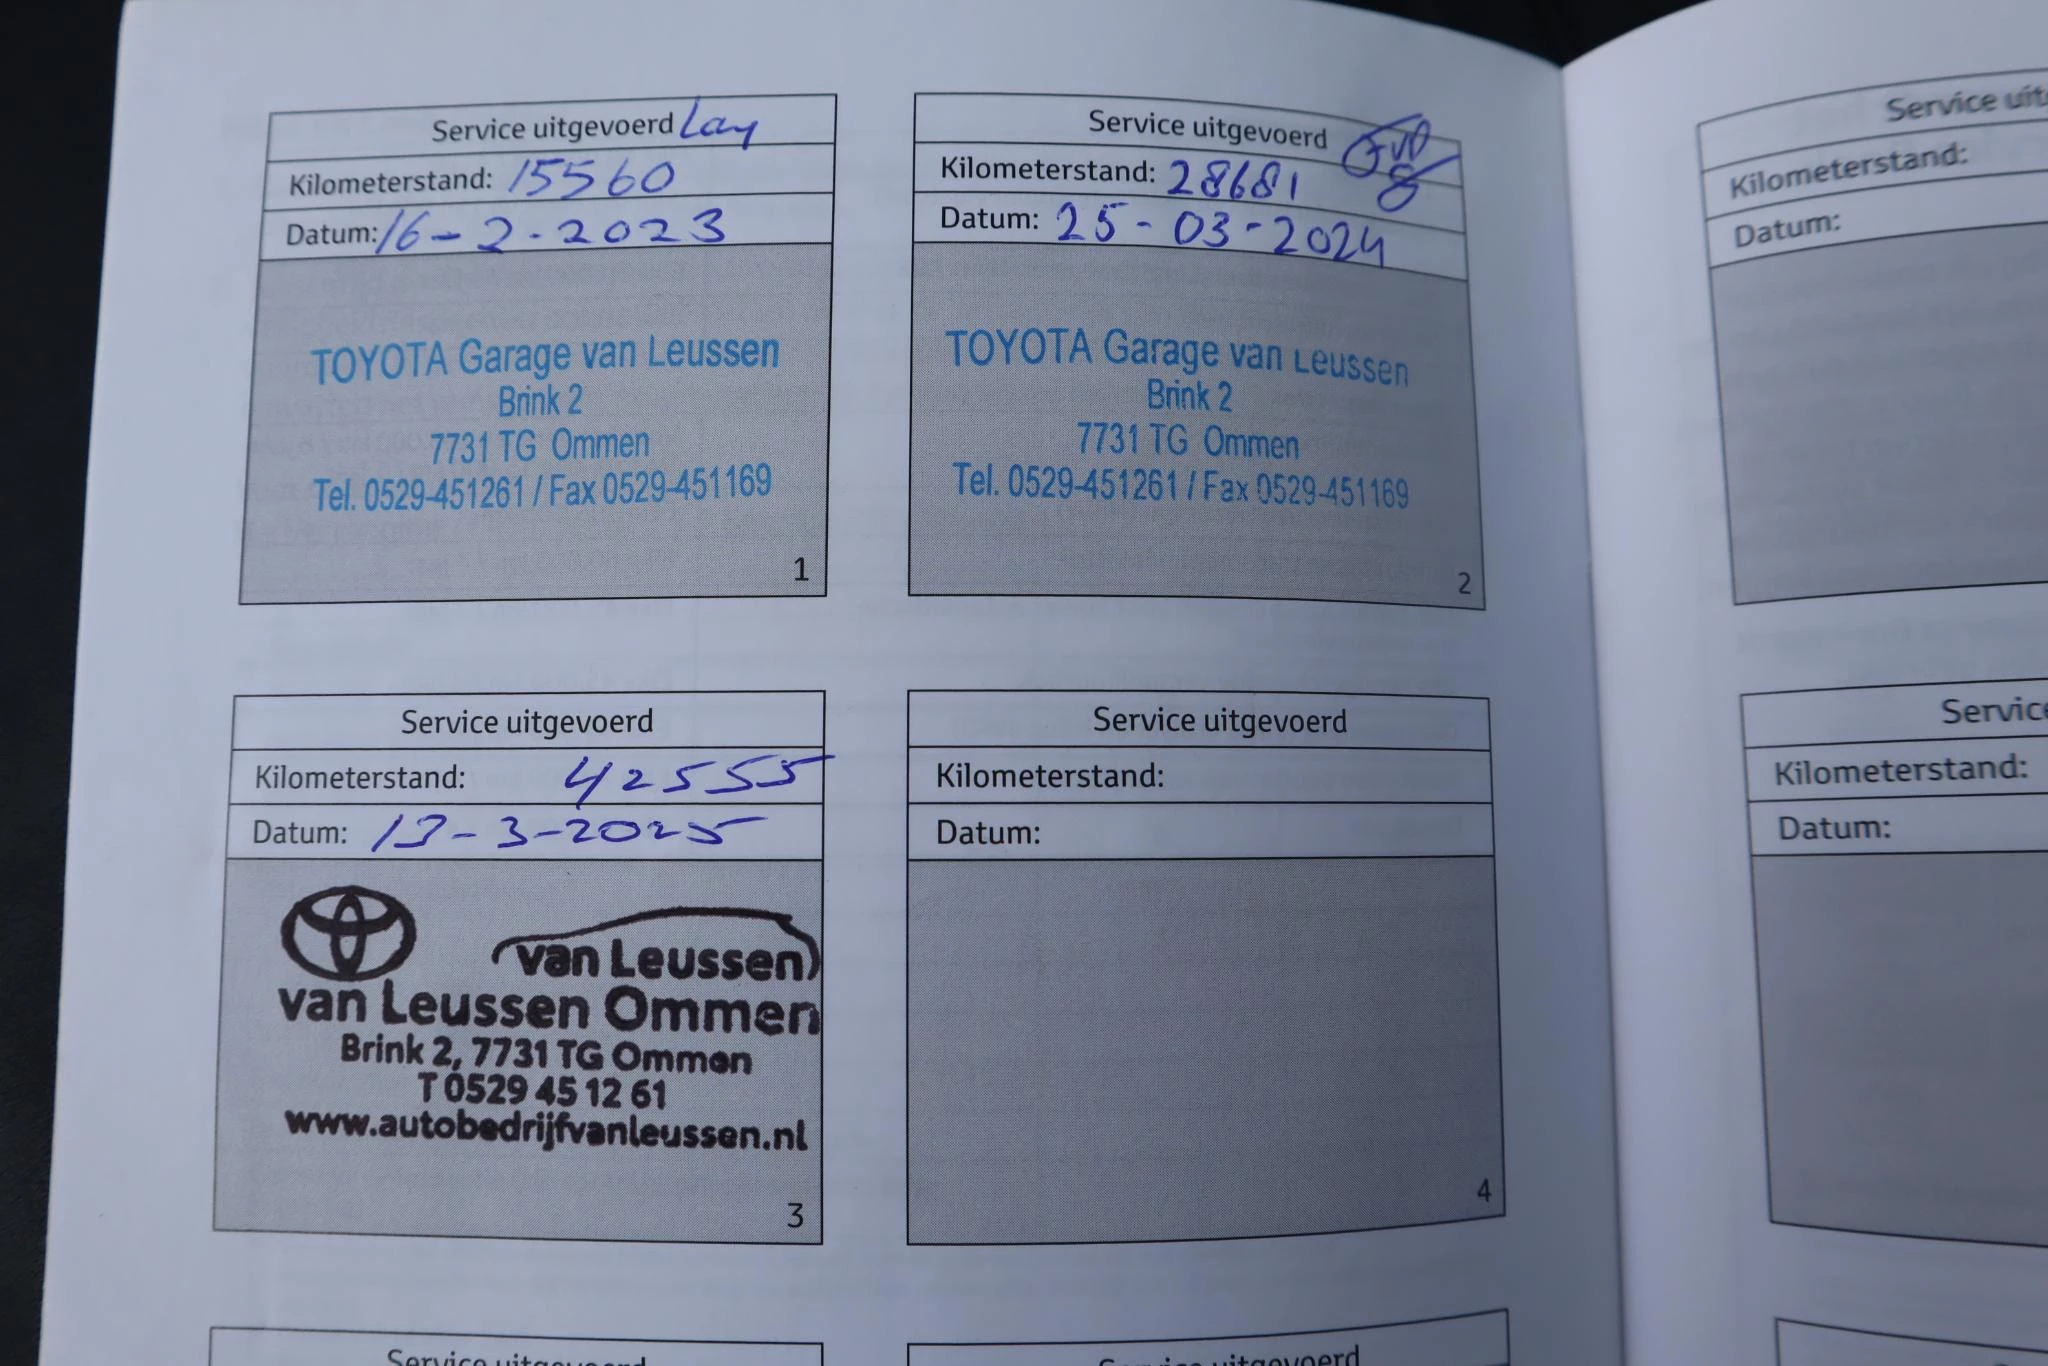 Service uitgevoerd Lay
Kilometerstand: 15560
Datum: 16-2-2023
TOYOTA Garage van Leussen
Brink 2
7731 TG Ommen
Tel. 0529-451261 / Fax 0529-451169
1
Service uitgevoerd
Kilometerstand: 28681
Datum: 25-03-2024
TOYOTA Garage van Leussen
Brink 2
7731 TG Ommen
Tel. 0529-451261 / Fax 0529-451169
2
Service uitgevoerd
Kilometerstand: 42555
Datum: 13-3-2025
van Leussen
van Leussen Ommen
Brink 2, 7731 TG Ommen
T 0529 45 12 61
www.autobedrijfvanleussen.nl
3
Service uitgevoerd
Kilometerstand:
Datum:
4
Service uitgevoerd
Service uitgevoerd
Service uit
Kilometerstand:
Datum:
Service
Kilometerstand:
Datum: